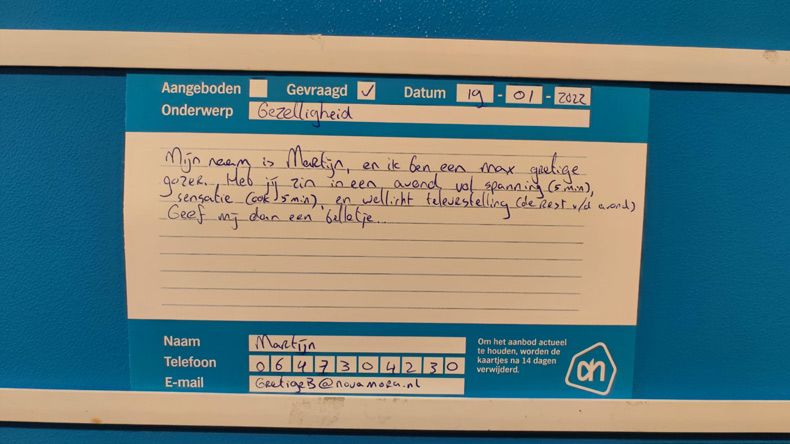 Aangeboden Gevraagd ✓ Datum 19 - 01 - 2022
Onderwerp Gezelligheid
Mijn naam is Martijn, en ik ben een max gretige
gozer. Heb jij zin in een avond vol spanning (5 min),
sensatie (ook 5 min), en wellicht teleurstelling (de rest v/d avond)
Geef mij dan een belletje...
Naam Martijn
Telefoon 0647304230
E-mail GretigeB@novamora.nl
Om het aanbod actueel
te houden, worden de
kaartjes na 14 dagen
verwijderd.
ah